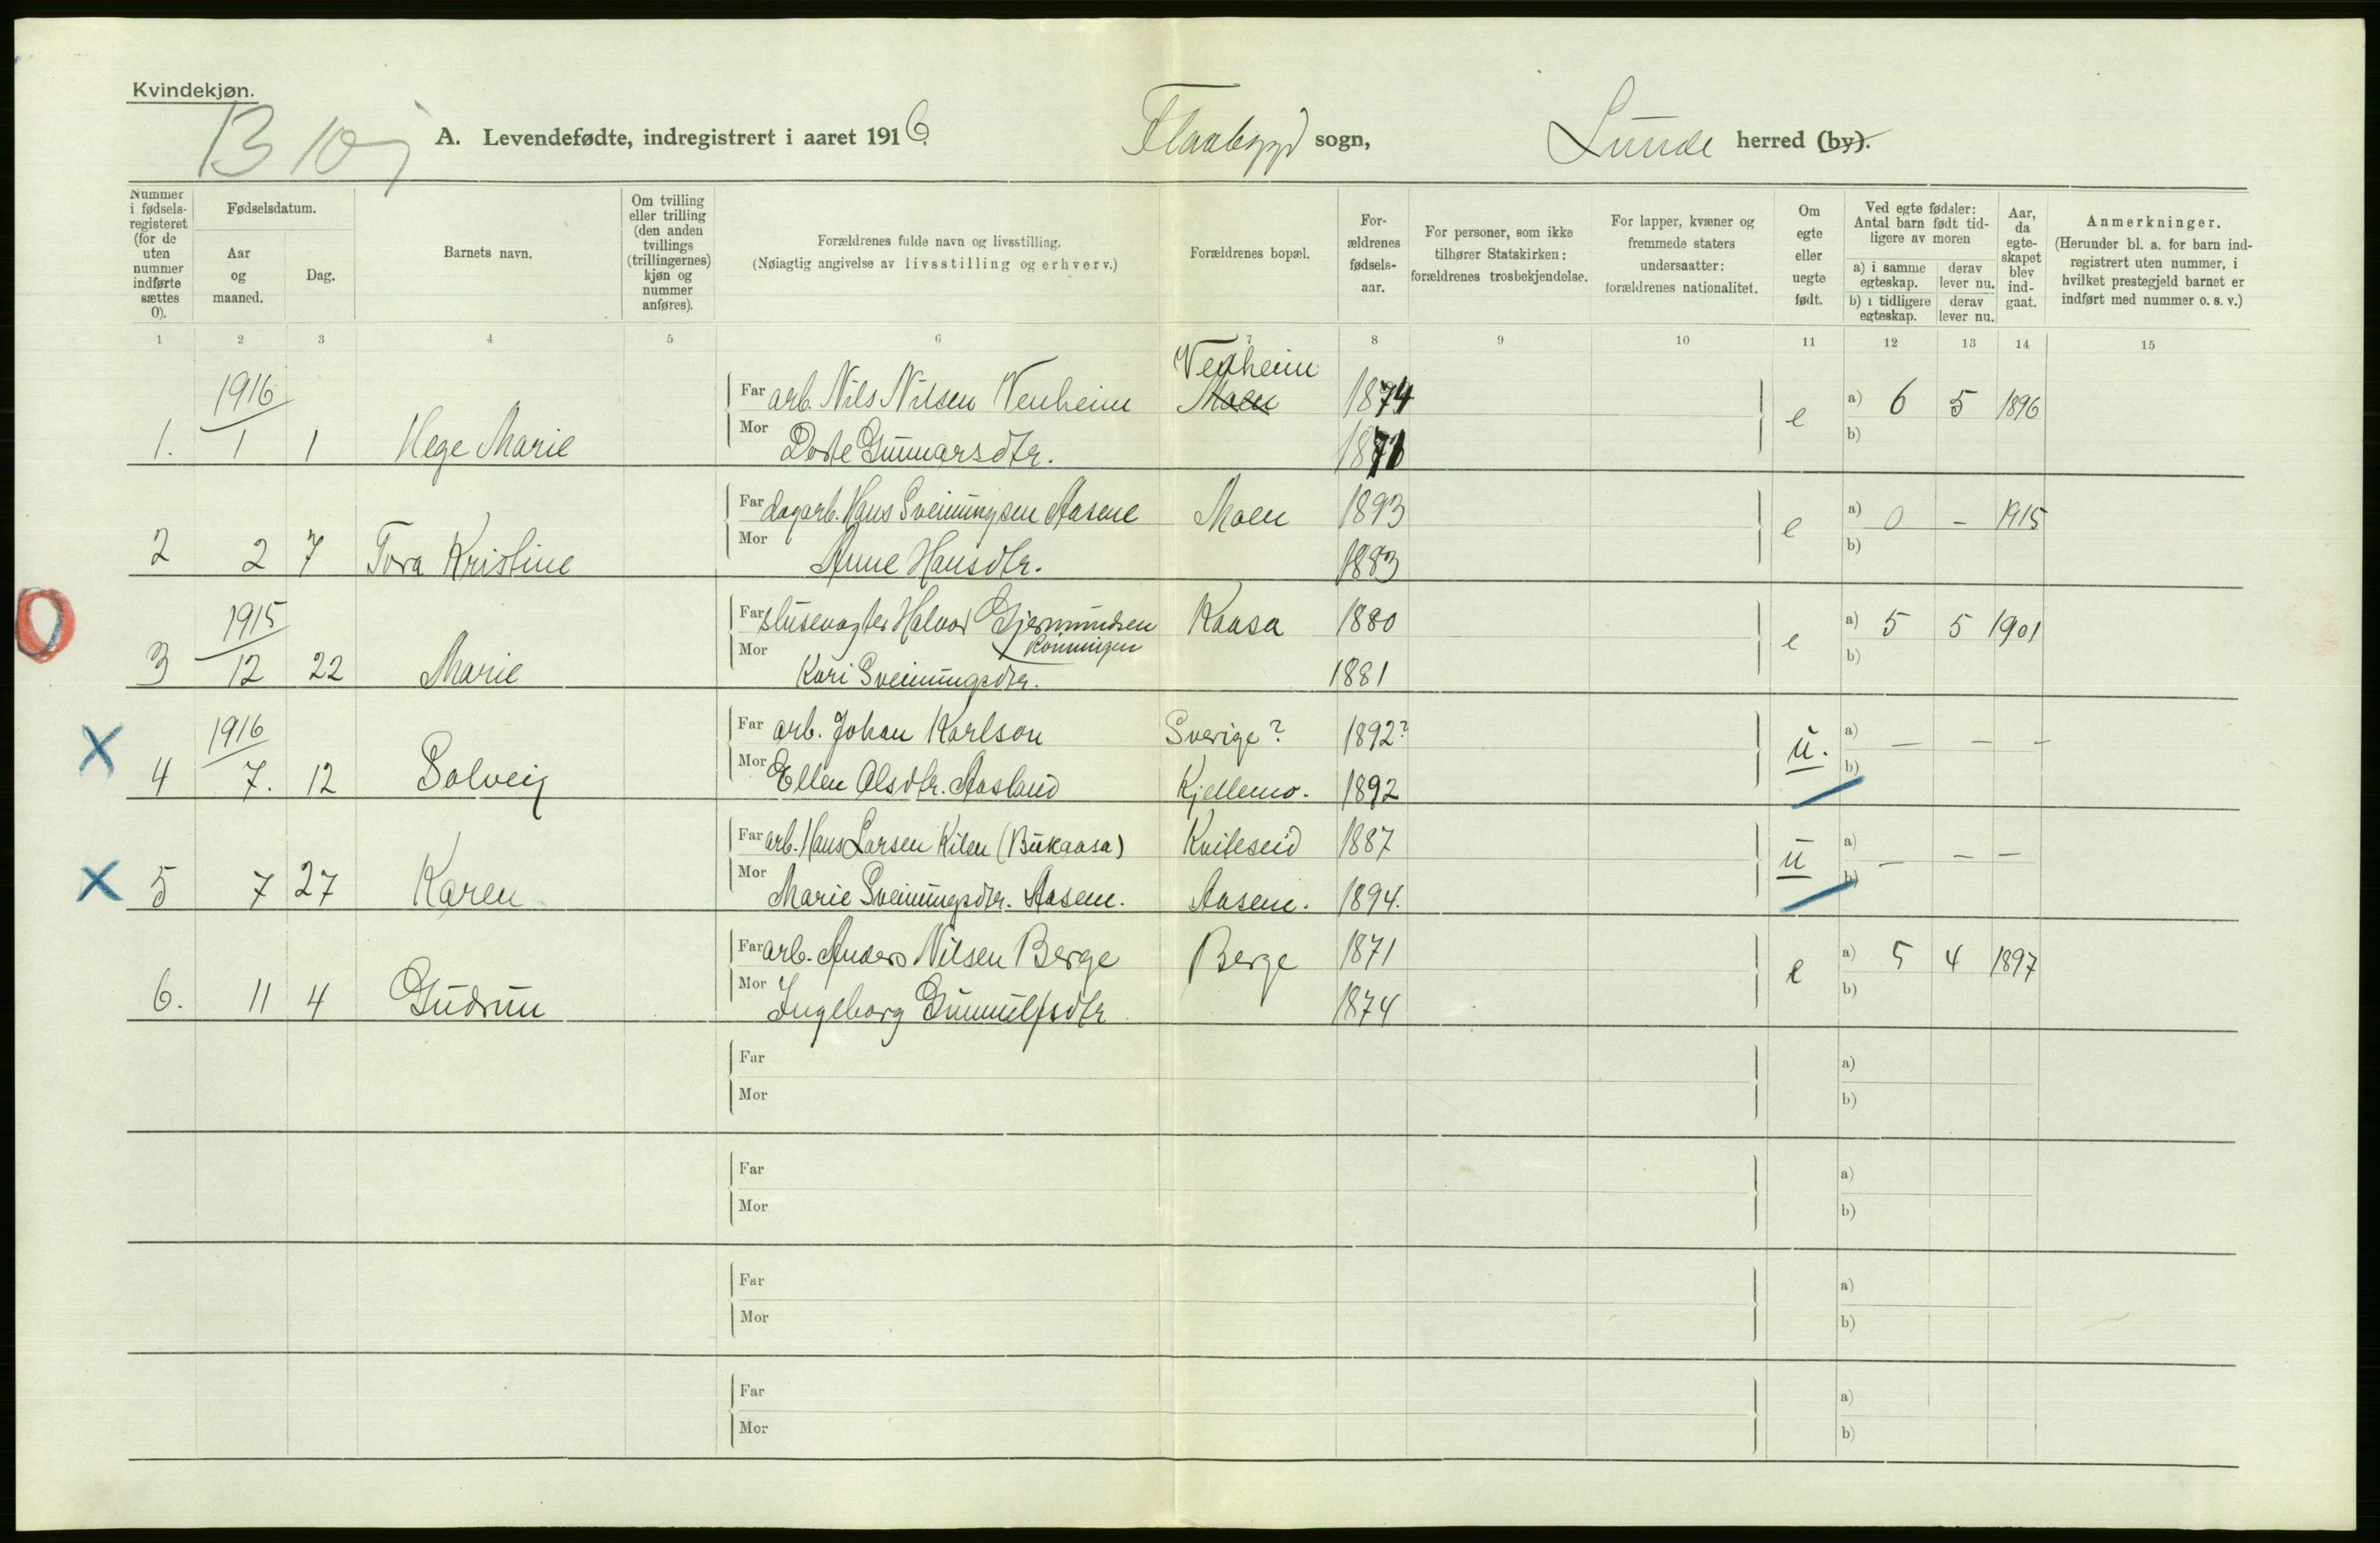 Kvindekjøn.
B 10
A. Levendefødte, indregistrert i aaret 1916. Flaabygd sogn, Lunde herred (by).
Nummer i fødselsregisteret (for de uten nummer indførte sættes 0).
Fødselsdatum.
Aar og maaned.
Dag.
Barnets navn.
Om tvilling eller trilling (den anden tvillings (trillingernes) kjøn og nummer anføres).
Forældrenes fulde navn og livsstilling.
(Nøiagtig angivelse av livsstilling og erhverv.)
Forældrenes bopæl.
Forældrenes fødselsaar.
For personer, som ikke tilhører Statskirken: forældrenes trosbekjendelse.
For lapper, kvæner og fremmede staters undersaatter: forældrenes nationalitet.
Om egte eller uegte født.
Ved egte fødsler: Antal barn født tidligere av moren
a) i samme egteskap. derav lever nu.
b) i tidligere egteskap. derav lever nu.
Aar, da egteskapet blev indgaat.
Anmerkninger.
(Herunder bl. a. for barn indregistrert uten nummer, i hvilket prestegjeld barnet er indført med nummer o. s. v.)
1 2 3 4 5 6 7 8 9 10 11 12 13 14 15
1916 Far arb. Nils Nilsen Venheim Venheim Moen 1874 e a) 6 5 1896
1. 1 1 Hege Marie Mor Dorte Gunnarsdtr. 1871 b)
Far dagarb. Hans Sveinungsen Aasene Moen 1893 e a) 0 - 1915
2 2 7 Tora Kristine Mor Anne Hansdtr. 1883 b)
1915 Far slusevogter Halvor Gjermundsen Kaasa 1880 e a) 5 5 1901
3 12 22 Marie Mor Kari Sveinungsdtr. 1881 b)
1916 Far arb. Johan Karlson Sverige? 1892? u. a) — — —
X 4 7. 12 Solveig Mor Ellen Olsdtr. Aasland Kjellemo. 1892 b)
Far arb. Hans Larsen Kilen (Bukaasa) Kviteseid 1887 u a) — — —
X 5 7 27 Karen Mor Marie Sveinungsdtr. Aasene. Aasene. 1894. b)
Far arb. Anders Nilsen Berge Berge 1871 e a) 5 4 1897
6. 11 4 Gudrun Mor Ingeborg Gunnulfsdtr 1874 b)
Far a)
Mor b)
Far a)
Mor b)
Far a)
Mor b)
Far a)
Mor b)